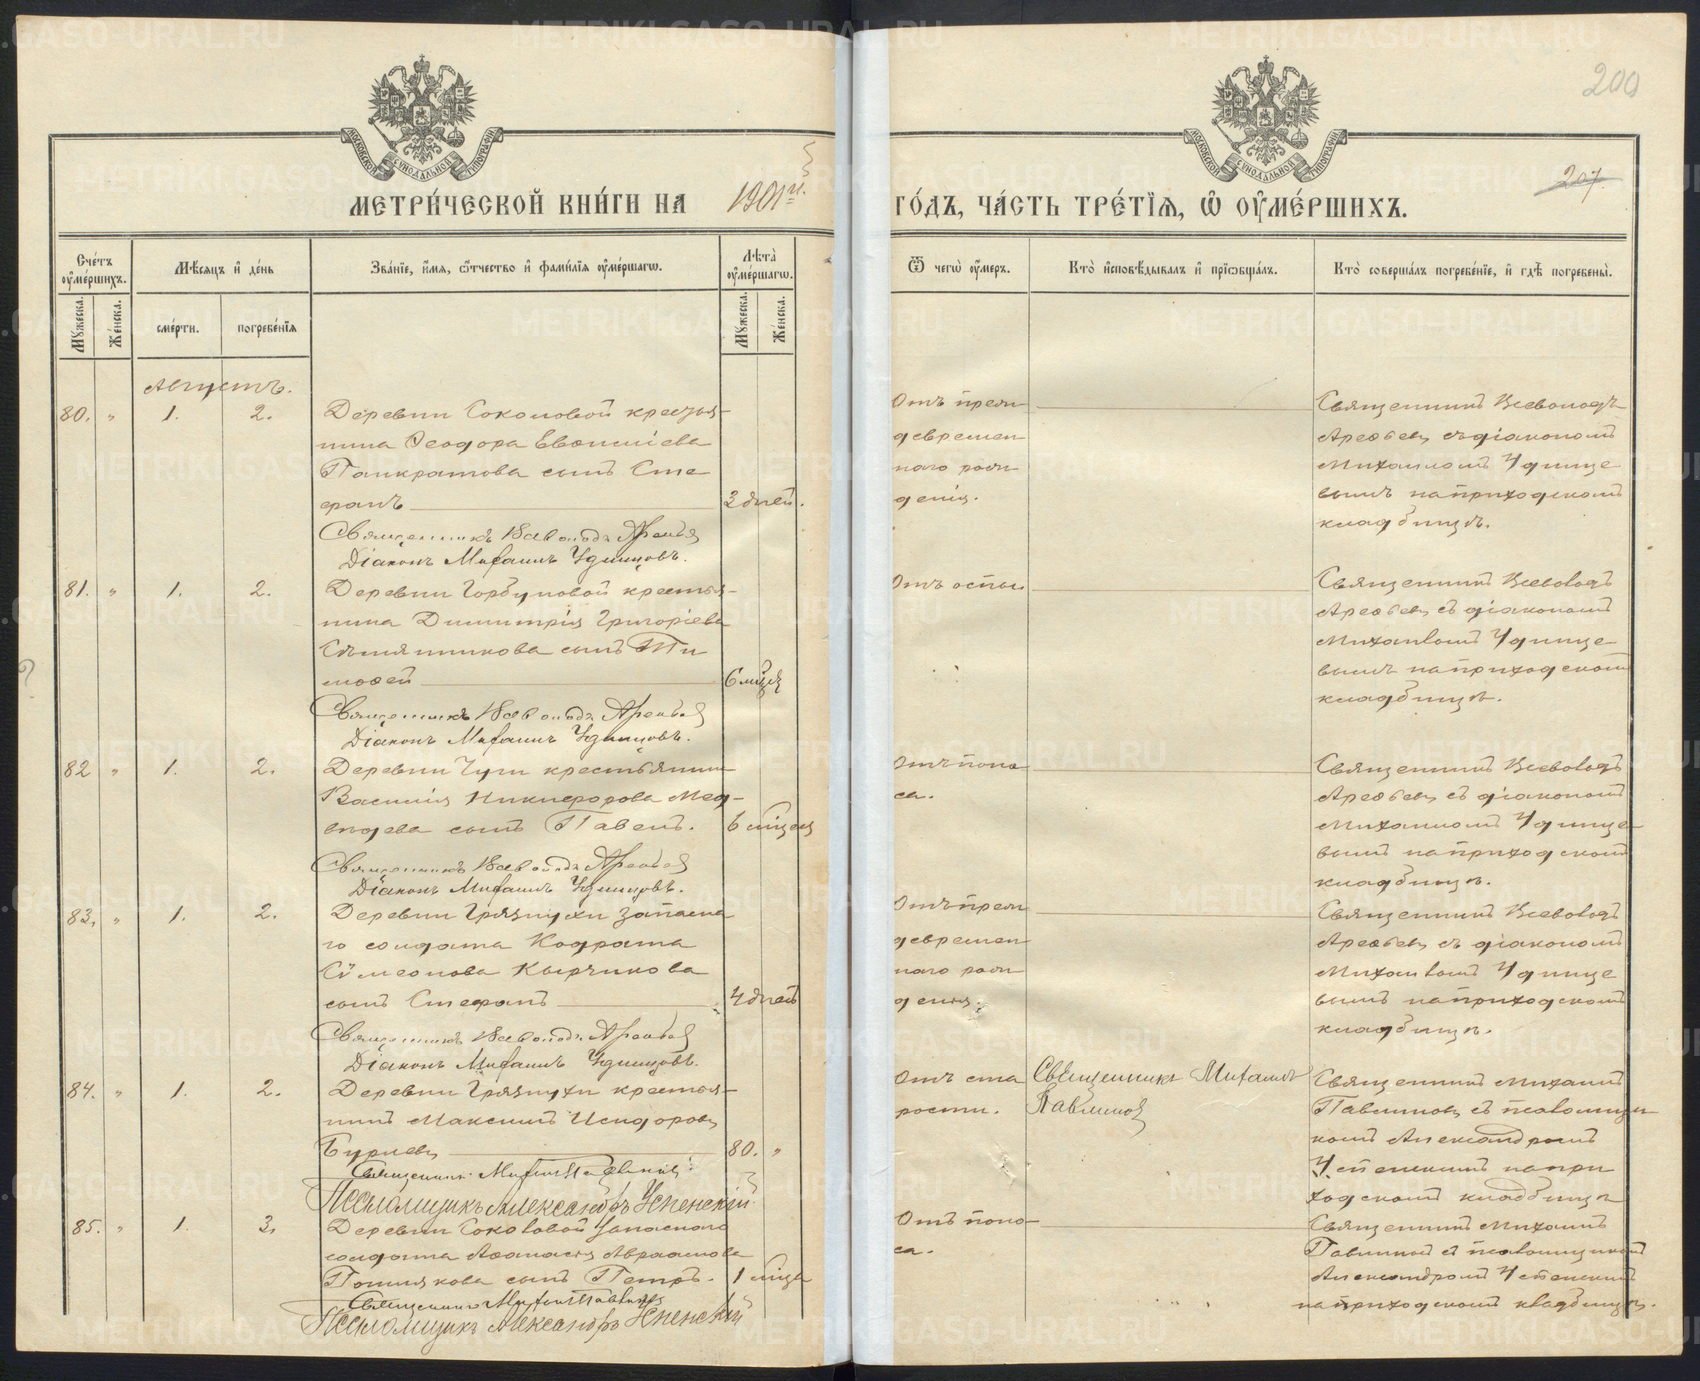 200
207
МЕТРИ́ЧЕСКОЙ КНИ́ГИ НА 1901й
ГО́ДЪ, ЧА́СТЬ ТРЕ́ТІѦ, Ѡ ОУМЕ́РШИХЪ.
Сче́тъ оумéршихъ.
Мѣ́сяцъ и де́нь
Зва́нїе, и́мя, ѻ҆́тчество и фами́лїя оумéршагѡ.
Лѣ́та оумéршагѡ.
Ѿ чегѡ̀ оу́меръ.
Кто̀ и҆сповѣ́дывалъ и҆ прїѡбща́лъ.
Кто̀ соверша́лъ погребе́нїе, и҆ гдѣ̀ погребены̀.
Му́жеска.
Же́нска.
сме́рти.
погребе́нїя
Му́жеска.
Же́нска.
Августъ.
80. " 1. 2.
Деревни Соколовой крестья-
нина Ѳеодора
Панкратова сынъ Сте
фанъ 3 дней.
Священникъ Всеволодъ Арефьев
Діаконъ Михаилъ Удинцовъ.
Отъ преж
девремен
наго рож
денія.
Священникъ Всеволодъ
Арефьевъ съ діакономъ
Михаиломъ Удинце
вымъ на приходскомъ
кладбищѣ.
81. " 1. 2.
Деревни Горбуновой крестья-
нина Димитрія Григоріева
сынъ Ти
моѳей 6 мцъ
Священникъ Всеволодъ Арефьев
Діаконъ Михаилъ Удинцовъ.
Отъ оспы.
Священникъ Всеволодъ
Арефьевъ съ діакономъ
Михаиломъ Удинце
вымъ на приходскомъ
кладбищѣ.
82 " 1. 2.
Деревни Чуги крестьянина
Василія Никифорова Мед-
вѣдева сынъ Павелъ. 6 мцевъ
Священникъ Всеволодъ Арефьев
Діаконъ Михаилъ Удинцовъ.
Отъ поно
са.
Священникъ Всеволодъ
Арефьевъ съ діакономъ
Михаиломъ Удинце
вымъ на приходскомъ
кладбищѣ.
83. " 1. 2.
Деревни Грязнухи запасна
го солдата Кодрата
Сѵмеонова Кырчикова
сынъ Стефанъ 4 дней
Священникъ Всеволодъ Арефьев
Діаконъ Михаилъ Удинцовъ.
Отъ преж
девремен
наго рож
денія.
Священникъ Всеволодъ
Арефьевъ съ діакономъ
Михаиломъ Удинце
вымъ на приходскомъ
кладбищѣ.
84. " 1. 2.
Деревни Грязнухи крестья-
нинъ Максимъ Исидоровъ
80. "
Священникъ Михаилъ Павлиновъ
Псаломщикъ Александръ Успенскій
Отъ ста
рости.
Священникъ Михаилъ
Павлиновъ
Священникъ Михаилъ
Павлиновъ съ псаломщи
комъ Александромъ
Успенскимъ на при
ходскомъ кладбищѣ
85. " 1. 3.
Деревни Соколовой запаснаго
солдата Аѳанасія Авраамова
Пошлякова сынъ Петръ. 1 мца
Священникъ Михаилъ Павлиновъ
Псаломщикъ Александръ Успенскій
Отъ поно-
са.
Священникъ Михаилъ
Павлиновъ съ псаломщикомъ
Александромъ Успенскимъ
на приходскомъ кладбищѣ.